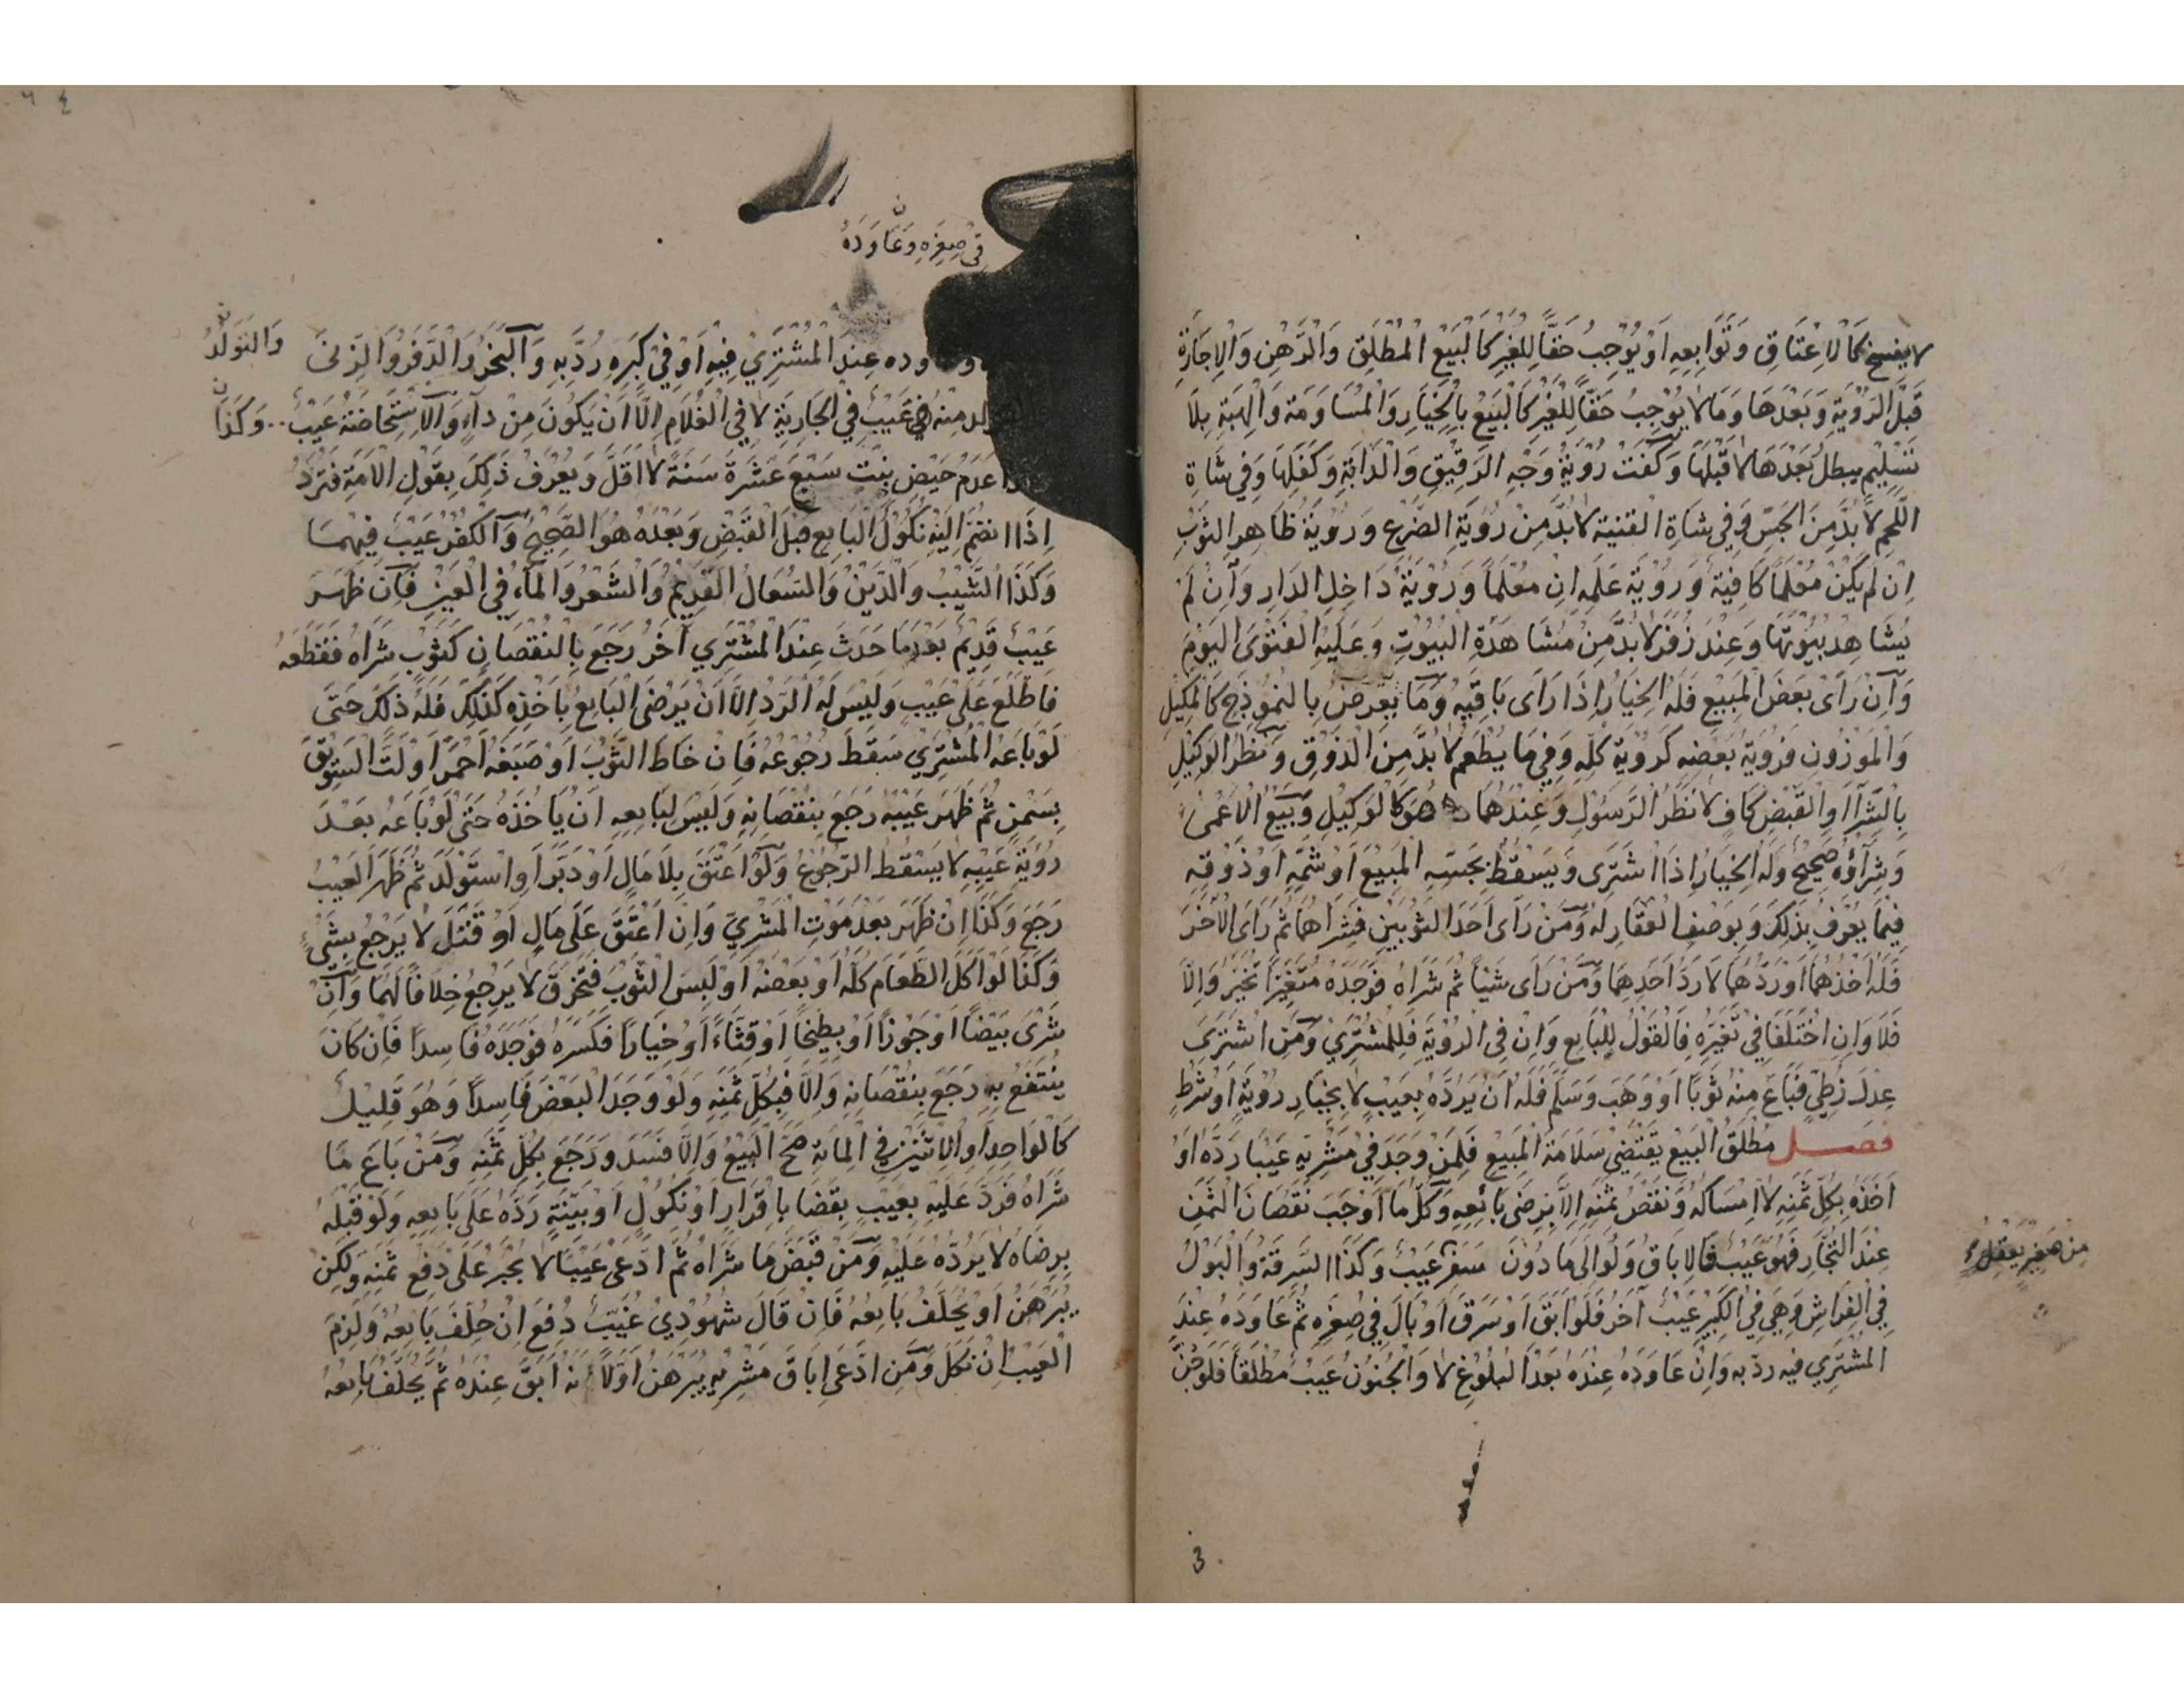 لا يفسخ كَالاِعْتَاقِ وَتَوَابِعِهِ اَوْ يُوْجِبُ حَقًّا لِلْغَيْرِ كَالْبَيْعِ الْمُطْلَقِ وَالرَّهْنِ وَالْاِجَارَةِ
قَبْلَ الرُّوْيَةِ وَبَعْدَهَا وَمَا لَا يُوْجِبُ حَقًّا لِلْغَيْرِ كَالْبَيْعِ بِالْخِيَارِ وَالْمُسَاوَمَةِ وَالْهِبَةِ بِلَا
تَسْلِيْمٍ يبطلُ بَعْدَهَا لَا قَبْلَهَا وَكَفَتْ رُوْيَةُ وَجْهِ الرَّقِيْقِ وَالْدَّابَةِ وَكَفَلِهَا وَفِي شَاةِ
اللَّحْمِ لَا بُدَّ مِنَ الْجَسِّ وَفِي شَاةِ القنية لَا بُدَّ مِنْ رُوْيَةِ الضَّرْعِ وَرُوْيَةُ ظَاهِرِ الثَّوْبِ
اِنْ لَمْ يَكُنْ مُعْلَمًا كَافِيَةٌ وَرُوْيَةُ عَلَمِهِ اِن مُعْلَمًا وَرُوْيَةُ دَاخِلِ الدَارِ وَاِنْ لَمْ
يُشَاهِدْ بُيُوْتَهَا وَعِنْدَ زُفَرَ لَا بُدَّ مِنْ مُشَاهَدَةِ البُيُوْتِ وَعَلَيْهِ الفَتْوَى الْيَوْمَ
وَاِنْ رَاَى بَعْضَ الْمَبِيْعِ فَلَهُ الْخِيَارُ اِذَا رَاَى بَاقِيَهُ وَمَا يُعْرَضُ بِالنَّمُوْذَجِ كَالْمَكِيْلِ
وَالْمَوْزُوْنِ فَرُوْيَةُ بَعْضِهِ كَرُوْيَةِ كُلِّهِ وَفِيْمَا يُطْعَمُ لَا بُدَّ مِنَ الْذَوْقِ وَنَظَرُ الْوَكِيْلِ
بِالْشِّرَآءِ اَوِ الْقَبْضِ كَافٍ لَا نَظَرُ الرَّسُوْلِ وَعِنْدَهُمَا هُوَ كَالْوَكِيْلِ وَبَيْعُ الْاَعْمَى
وَشِرَآؤُهُ صَحِيْحٌ وَلَهُ الْخِيَارُ اِذَا اشْتَرَى وَيَسْقُطُ بِجَسِّهِ الْمَبِيْعَ اَوْ شَمِّهِ اَوْ ذَوْقِهِ
فِيْمَا يُعْرَفُ بِذَلِكَ وَبِوَصْفِ الْعَقَارِ لَهُ وَمَنْ رَآى اَحَدَ الثَّوْبَيْنِ فَشَرَاهُمَا ثُمَّ رَاَى الْآخَرَ
فَلَهُ اَخْذُهُمَا اَوْ رَدُّهُمَا لَا رَدُّ اَحَدِهِمَا وَمَنْ رَاَى شَيْئًا ثُمَّ شَرَاهُ فَوَجَدَهُ مُتَغَيِّرًا تَخَيَّرَ وَاِلَّا
فَلَا وَاِنِ اخْتَلَفَا فِي تَغَيُّرِهِ فَالْقَوْلُ لِلْبَايِعِ وَاِنْ فِي الرُّوْيَةِ فَلِلْمُشْتَرِيْ وَمَنِ اشْتَرَى
عِدْلَ زُطِّيٍّ فَبَاعَ مِنْهُ ثَوْبًا اَوْ وَهَبَ وَسَلَّمَ فَلَهُ اَنْ يَرُدَّهُ بِعَيْبٍ لَا بِخِيَارِ رُوْيَةٍ اَوْ شَرْطٍ
فصل مُطْلَقُ الْبَيْعِ يَقْتَضِيْ سَلَامَةَ الْمَبِيْعِ فَلِمَنْ وَجَدَ فِيْ مَشْرِيِّهِ عَيْبًا رَدُّهُ اَوْ
اَخْذُهُ بِكُلِّ ثَمَنِهِ لَا اِمْسَاكُهُ وَنَقْصُ ثَمَنِهِ اِلَّا بِرِضَى بَائِعِهِ وَكُلُّ مَا اَوْجَبَ نُقْصَانَ الثَّمَنِ
عِنْدَ التُّجَّارِ فَهُوَ عَيْبٌ فَالاِبَاقُ وَلَوْ اِلَى مَا دُوْنَ سَفَرٍ عَيْبٌ وَكَذَا السَّرِقَةُ وَالْبَوْلُ
مِنْ صَغِيْرٍ يَعْقِلُ
فِي الْفِرَاشِ وَهِيَ فِي الْكَبِيْرِ عَيْبٌ آخَرُ فَلَوْ اَبَقَ اَوْ سَرَقَ اَوْ بَالَ فِي صِغَرِهِ ثُمَّ عَاوَدَهُ عِنْدَ
الْمُشْتَرِي فيه ردّ به وَاِنْ عَاوَدَهُ عِنْدَهُ بَعْدَ الْبُلُوْغِ لَا وَالْجُنُوْنُ عَيْبٌ مُطْلَقًا فَلَوْ جُنَّ
3
٤
فِيْ صِغَرِهِ وَعَاوَدَهُ
عِنْدَ الْمُشْتَرِيْ فِيْهِ اَوْ فِيْ كِبَرِهِ رُدَّ بِهِ وَالْبَخَرُ وَالْدَّفَرُ وَالزِّنَى وَالتَّوَلُّدُ
مِنْهُ عَيْبٌ فِي الْجَارِيَةِ لَا فِي الْغُلَامِ اِلَّا اَنْ يَكُوْنَ مِنْ دَآءٍ وَالْاِسْتِحَاضَةُ عَيْبٌ وَكَذَا
عَدَمُ حَيْضِ بِنْتِ سَبْعَ عَشْرَةَ سَنَةً لَا اَقَلَّ وَيُعْرَفُ ذَلِكَ بِقَوْلِ الْاَمَةِ فَتُرَدُّ
اِذَا انضَمَّ اِلَيْهِ نُكُوْلُ الْبَايِعِ قَبْلَ الْقَبْضِ وَبَعْدَهُ هُوَ الصَّحِيْحُ وَالْكُفْرُ عَيْبٌ فِيْهِمَا
وَكَذَا الشَّيْبُ وَالدَّيْنُ وَالسُّعَالُ الْقَدِيْمُ وَالشَّعْرُ وَالْمَآءُ فِي الْعَيْنِ فَاِنْ ظَهَرَ
عَيْبٌ قَدِيْمٌ بَعْدَمَا حَدَثَ عِنْدَ الْمُشْتَرِي آخَرُ رَجَعَ بِالنُّقْصَانِ كَثَوْبٍ شَرَاهُ فَقَطَعَهُ
فَاطَّلَعَ عَلَى عَيْبٍ وَلَيْسَ لَهُ الرَّدُّ اِلَّا اَنْ يَرْضَى الْبَايِعُ بِاَخْذِهِ كَذَلِكَ فَلَهُ ذَلِكَ حَتَّى
لَوْ بَاعَهُ الْمُشْتَرِيْ سَقَطَ رُجُوْعُهُ فَاِنْ خَاطَ الثَّوْبَ اَوْ صَبَغَهُ اَحْمَرَ اَوْ لَتَّ السَّوِيْقَ
بِسَمْنٍ ثُمَّ ظَهَرَ عَيْبُهُ رَجَعَ بِنُقْصَانِهِ وَلَيْسَ لِبَايِعِهِ اَنْ يَاخُذَهُ حَتَّى لَوْ بَاعَهُ بَعْدَ
رُوْيَةِ عَيْبِهِ لَا يَسْقُطُ الرُّجُوْعُ وَلَوْ اَعْتَقَ بِلَا مَالٍ اَوْ دَبَّرَ اَوِ اسْتَوْلَدَ ثُمَّ ظَهَرَ الْعَيْبُ
رَجَعَ وَكَذَا اِنْ ظَهَرَ بَعْدَ مَوْتِ الْمَشْرِيِّ وَاِنْ اَعْتَقَ عَلَى مَالٍ اَوْ قَتَلَ لَا يَرْجِعُ بِشَيْءٍ
وَكَذَا لَوْ اَكَلَ الطَّعَامَ كُلَّهُ اَوْ بَعْضَهُ اَوْ لَبِسَ الثَّوْبَ فَتَخَرَّقَ لَا يَرْجِعُ خِلَافًا لَهُمَا وَاِنْ
شَرَى بَيْضًا اَوْ جَوْزًا اَوْ بِطِّيْخًا اَوْ قِثَّاءً اَوْ خِيَارًا فَكَسَرَهُ فَوَجَدَهُ فَاسِدًا فَاِنْ كَانَ
يُنْتَفَعُ بِهِ رَجَعَ بِنُقْصَانِهِ وَاِلَّا فَبِكُلِّ ثَمَنِهِ وَلَوْ وَجَدَ الْبَعْضَ فَاسِدًا وَهُوَ قَلِيْلٌ
كَالْوَاحِدِ اَوِ الْاِثْنَيْنِ فِي الْمِائَةِ صَحَّ الْبَيْعُ وَاِلَّا فَسَدَ وَرَجَعَ بِكُلِّ ثَمَنِهِ وَمَنْ بَاعَ مَا
شَرَاهُ فَرُدَّ عَلَيْهِ بِعَيْبٍ بِقَضَا بِاِقْرَارٍ اَوْ نُكُوْلٍ اَوْ بَيِّنَةٍ رَدَّهُ عَلَى بَايِعِهِ وَلَوْ قَبِلَهُ
بِرِضَاهُ لَا يَرُدُّهُ عَلَيْهِ وَمَنْ قَبَضَ مَا شَرَاهُ ثُمَّ ادَّعَى عَيْبًا لَا يُجْبَرُ عَلَى دَفْعِ ثَمَنِهِ وَلَكِنْ
يُبَرْهِنُ اَوْ يُحَلَّفُ بَايِعُهُ فَاِنْ قَالَ شُهُوْدِيْ غُيَّبٌ دُفِعَ اِنْ حَلَفَ بَايِعُهُ وَلَزِمَ
الْعَيْبُ اِنْ نَكَلَ وَمَنِ ادَّعَى اِبَاقَ مَشْرِيِّهِ يُبَرْهِنُ اَوَّلًا اَنَّهُ اَبَقَ عِنْدَهُ ثُمَّ يُحَلَّفُ بَايِعُهُ